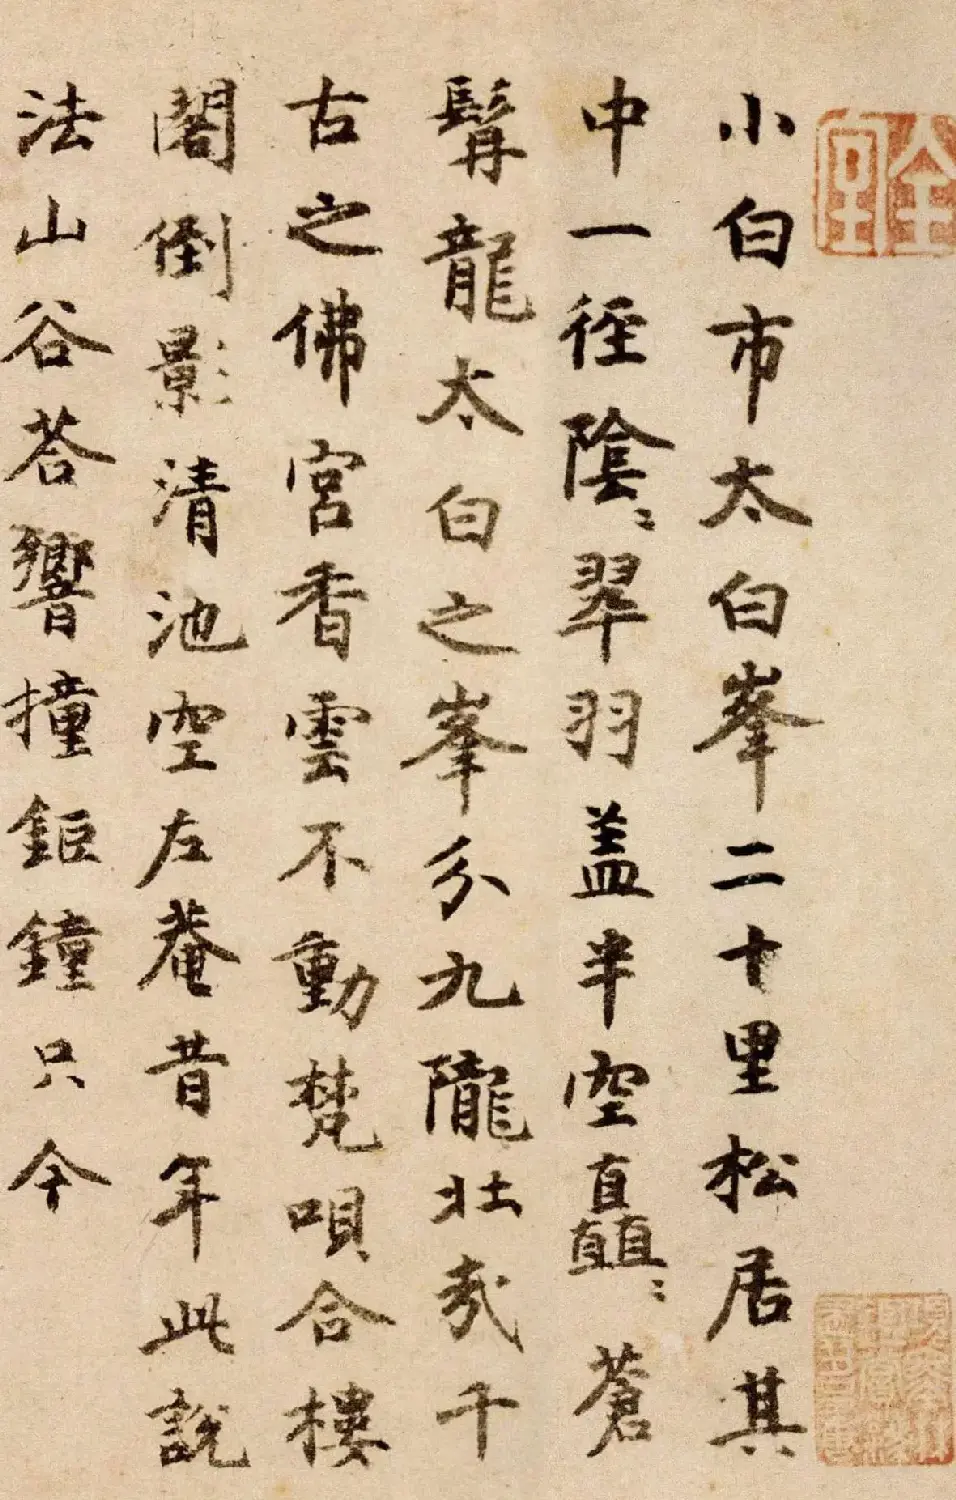 全室
小白市太白峯二十里松居其
中一徑陰〻翠羽盖半空矗〻蒼
髯龍太白之峯分九隴壯哉千
古之佛宮香雲不動梵唄合樓
閣倒影清池空左菴昔年此說
法山谷荅響撞鉅鐘只今